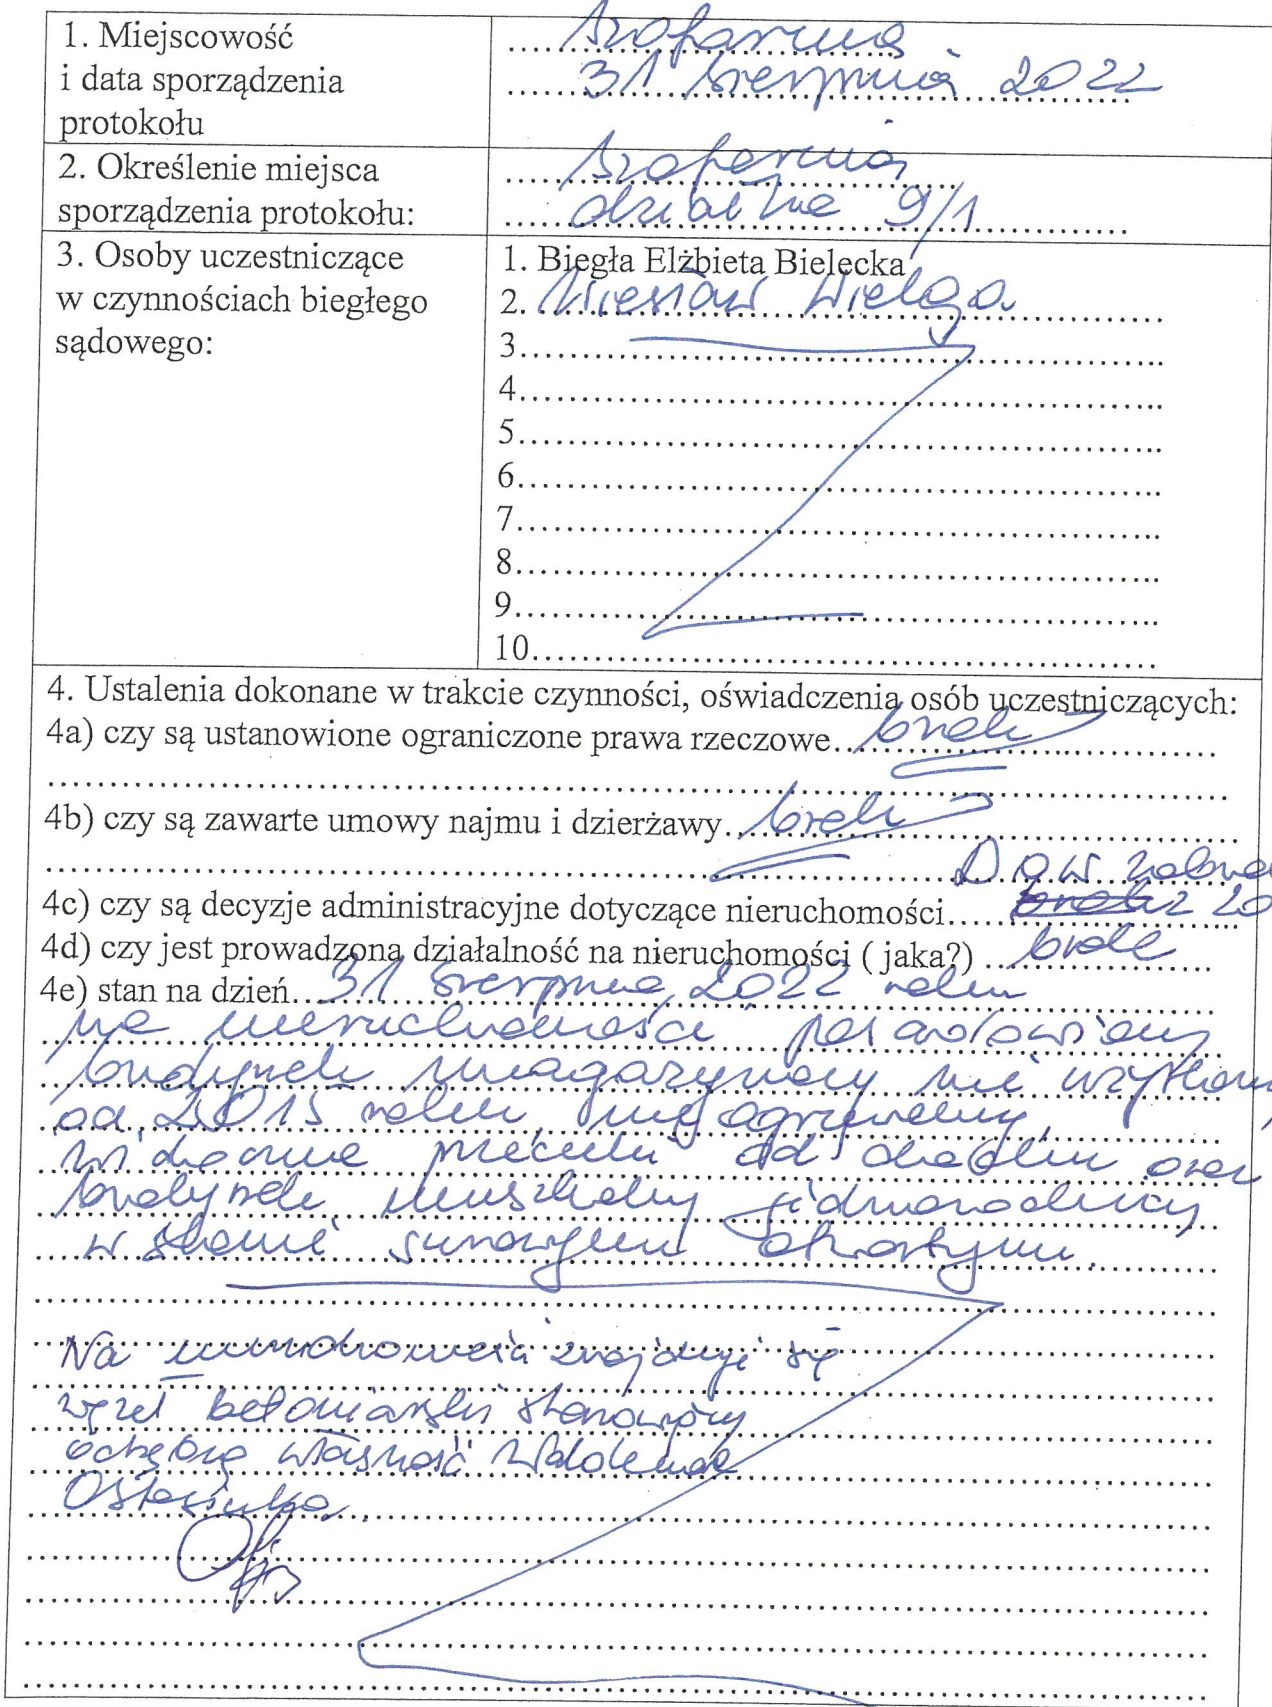 1. Miejscowość
i data sporządzenia
protokołu
Szafarnia
31 sierpnia 2022
2. Określenie miejsca
sporządzenia protokołu:
Szafarnia
działka 9/1
3. Osoby uczestniczące
w czynnościach biegłego
sądowego:
1. Biegła Elżbieta Bielecka
2. Wiesław Wielga
3.
4.
5.
6.
7.
8.
9.
10.
4. Ustalenia dokonane w trakcie czynności, oświadczenia osób uczestniczących:
4a) czy są ustanowione ograniczone prawa rzeczowe brak
4b) czy są zawarte umowy najmu i dzierżawy brak
4c) czy są decyzje administracyjne dotyczące nieruchomości
4d) czy jest prowadzona działalność na nieruchomości ( jaka?) brak
4e) stan na dzień 31 sierpnia 2022 roku
na nieruchomości posadowiony
budynek magazynowy nie użytkow
od 2015 roku, nie ogrzewany,
widoczne przecieki od dachu oraz
budynek mieszkalny jednorodzinny
w stanie surowym otwartym.
Na nieruchomości znajduje się
węzeł betoniarski stanowiący
odrębną własność Waldemara